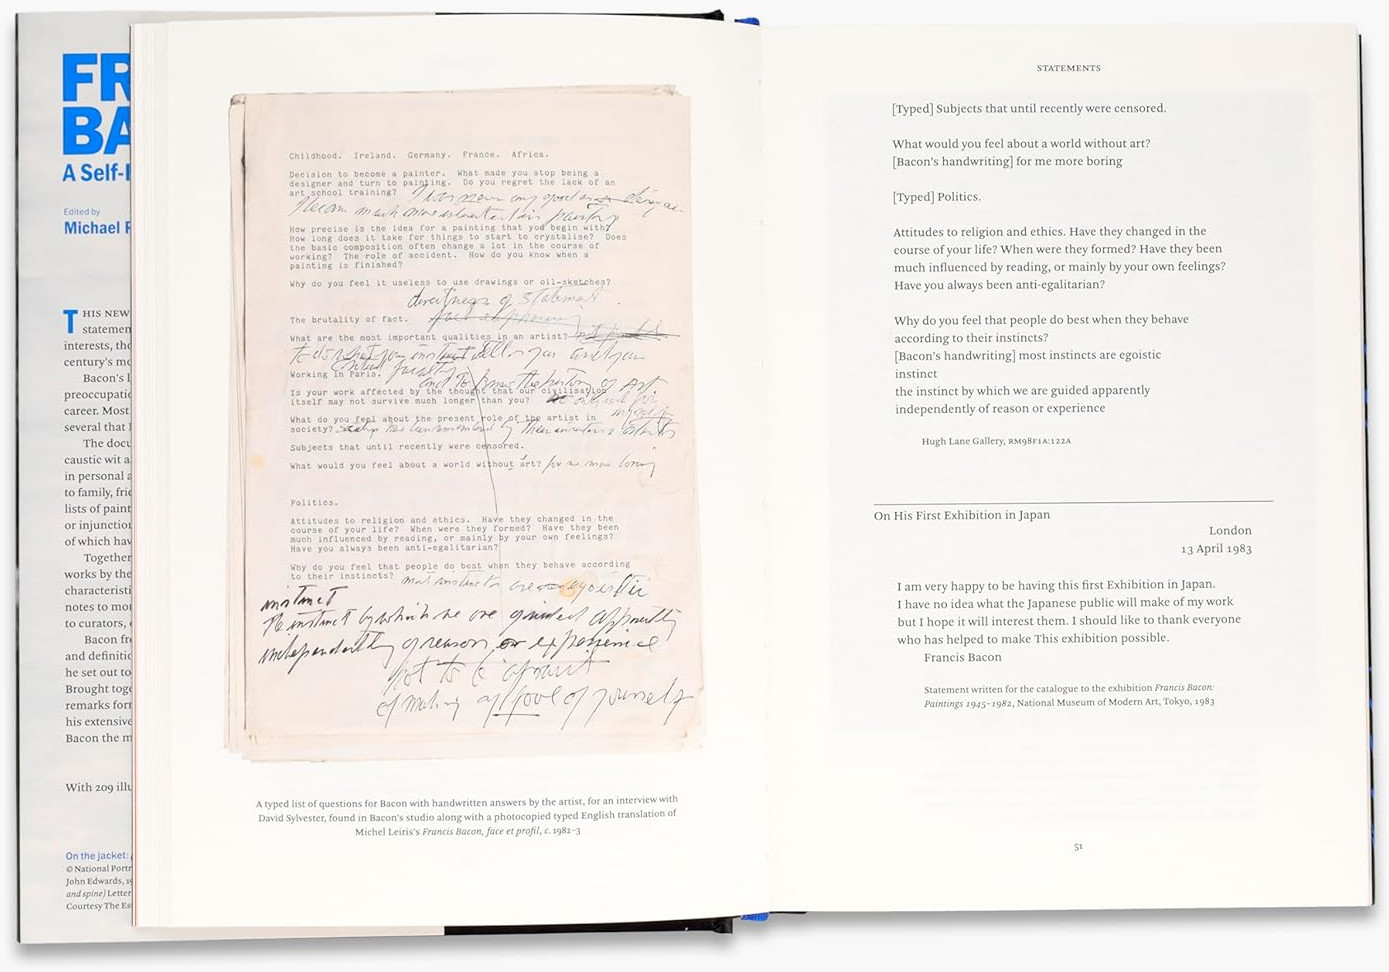 FR
BA
A Self-
Edited by
Michael
THIS NEW
statemen
interests, the
century's mo
Bacon's l
preoccupatio
career. Most
several that
The docu
caustic wit a
in personal a
to family, frie
lists of paint
or injunction
of which hav
Together
works by the
characteristi
notes to mor
to curators,
Bacon fre
and definitio
he set out to
Brought toge
remarks form
his extensive
Bacon the m
With 209 illu
On the jacket:
© National Portr
John Edwards, 19
and spine) Letter
Courtesy The Es
Childhood. Ireland. Germany. France. Africa.
Decision to become a painter. What made you stop being a
designer and turn to painting. Do you regret the lack of an
art school training? I was never any good as a designer
I became much more interested in painting
How precise is the idea for a painting that you begin with?
How long does it take for things to start to crystalise? Does
the basic composition often change a lot in the course of
working? The role of accident. How do you know when a
painting is finished?
Why do you feel it useless to use drawings or oil-sketches?
directness of statement
The brutality of fact.
What are the most important qualities in an artist?
to do what your instinct tells you and your
critical faculty
Working in Paris. and to know the history of Art
Is your work affected by the thought that our civilisation
itself may not survive much longer than you?
What do you feel about the present role of the artist in
society?
Subjects that until recently were censored.
What would you feel about a world without art? for me more boring
Politics.
Attitudes to religion and ethics. Have they changed in the
course of your life? When were they formed? Have they been
much influenced by reading, or mainly by your own feelings?
Have you always been anti-egalitarian?
Why do you feel that people do best when they behave according
to their instincts? most instincts are egoistic
instinct
the instinct by which we are guided apparently
independently of reason or experience
not to be afraid
of making a fool of yourself
A typed list of questions for Bacon with handwritten answers by the artist, for an interview with
David Sylvester, found in Bacon's studio along with a photocopied typed English translation of
Michel Leiris's Francis Bacon, face et profil, c. 1982–3
STATEMENTS
[Typed] Subjects that until recently were censored.
What would you feel about a world without art?
[Bacon's handwriting] for me more boring
[Typed] Politics.
Attitudes to religion and ethics. Have they changed in the
course of your life? When were they formed? Have they been
much influenced by reading, or mainly by your own feelings?
Have you always been anti-egalitarian?
Why do you feel that people do best when they behave
according to their instincts?
[Bacon's handwriting] most instincts are egoistic
instinct
the instinct by which we are guided apparently
independently of reason or experience
Hugh Lane Gallery, RM98F1A:122A
On His First Exhibition in Japan
London
13 April 1983
I am very happy to be having this first Exhibition in Japan.
I have no idea what the Japanese public will make of my work
but I hope it will interest them. I should like to thank everyone
who has helped to make This exhibition possible.
Francis Bacon
Statement written for the catalogue to the exhibition Francis Bacon:
Paintings 1945–1982, National Museum of Modern Art, Tokyo, 1983
51